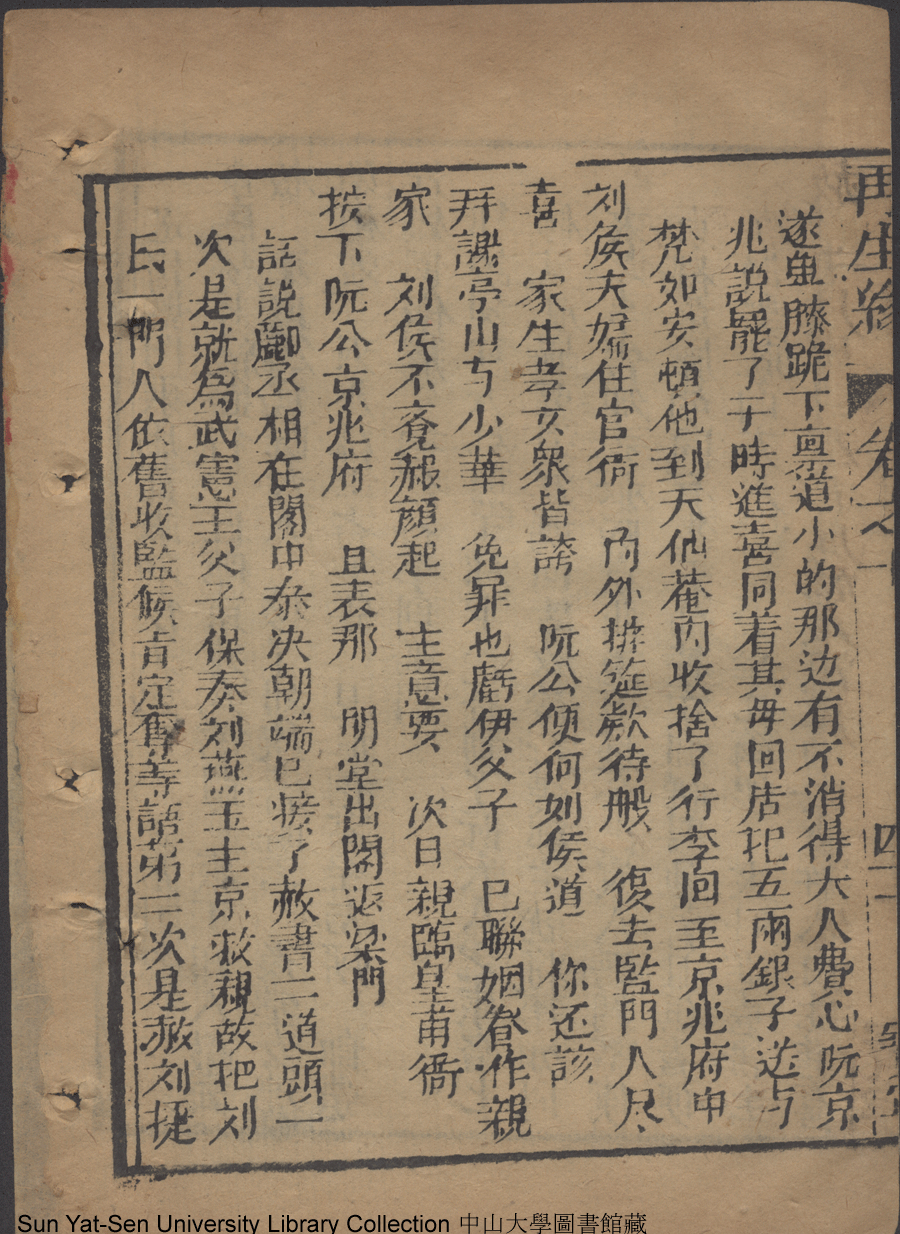 再生緣 卷之十 四十
遂魚膝跪下禀道小的那边有不消得大人費心阮京
兆說罷了于時進喜同着其毋回店把五兩銀子送与
梵如安頓他到天仙菴內收捨了行李回至京兆府中
刘侯夫婦住官衙 內外排筵欵待般 復去監門人尽
喜 家生孝女衆皆誇 阮公便向如侯道 你还該
拜謝亭山与少華 免罪也虧伊父子 已聯姻眷作親
家 刘侯不覔赧顔起 主意要 次日親臨皇甫衙
按下阮公京兆府 且表那 明堂出閣返梁門
話說酈丞相在閣中泰决朝端已接了赦書二道頭一
次是就為武憲王父子保奏刘燕玉主京救親故把刘
氏一門人依舊收監候旨定奪等語第二次是赦刘捷
Sun Yat-Sen University Library Collection 中山大學圖書館藏